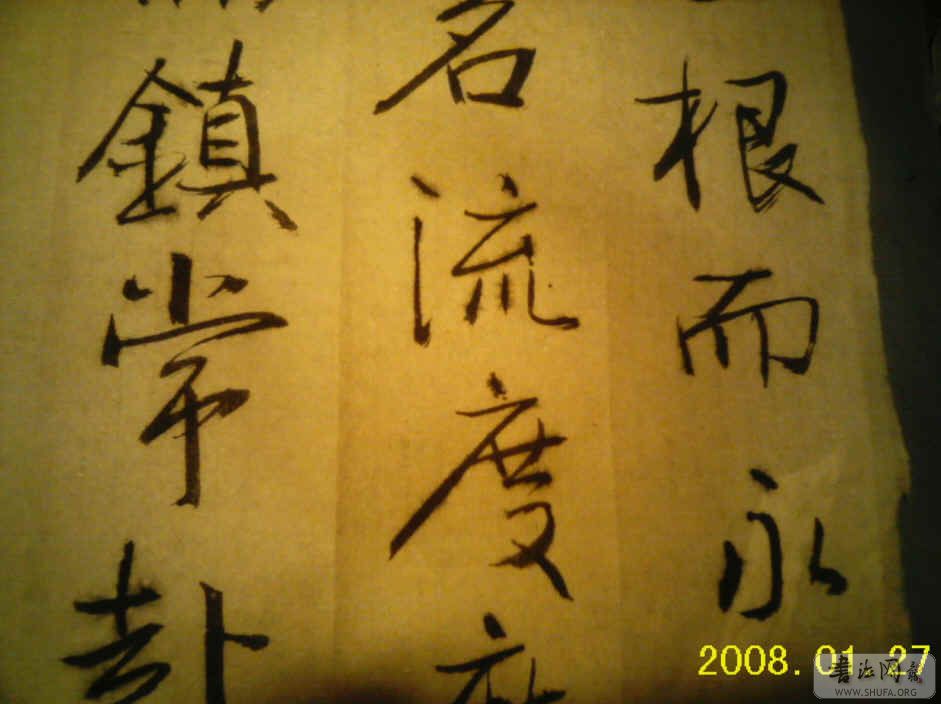 根而永
名流度
鎮常赴
2008.01.27
書法网
WWW.SHUFA.ORG